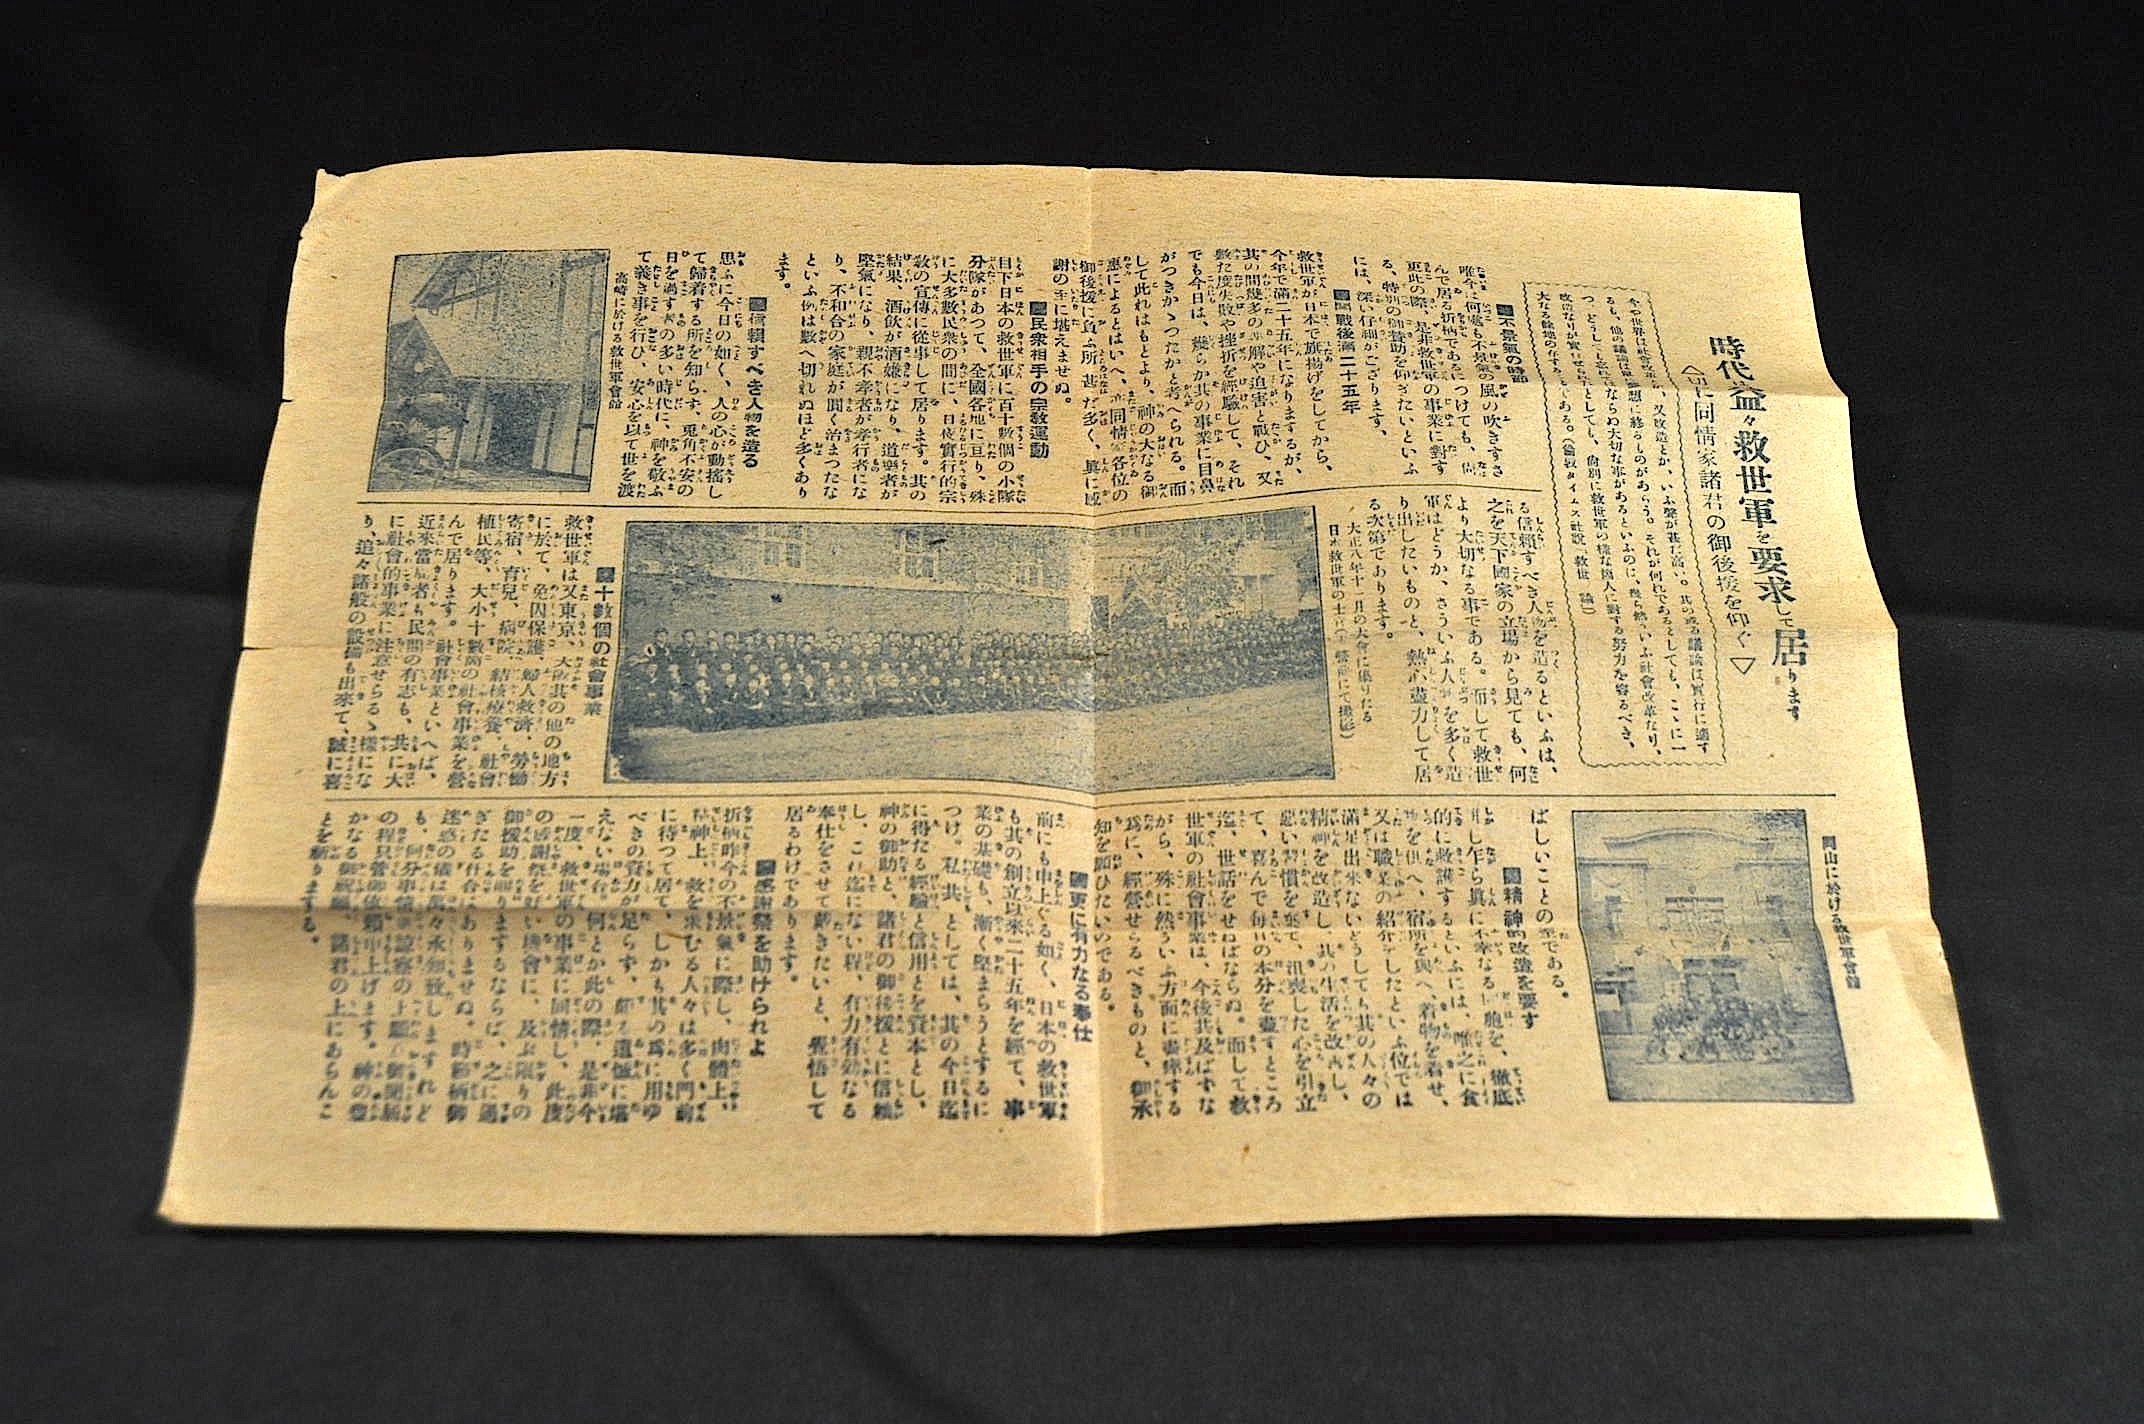 時代益々救世軍を要求して居ります
切に同情家諸君の御後援を仰ぐ
今や世界は社會改革とか、又改造とか、いふ聲が甚だ高い。其の或る議論は實行に適す
るも、他の議論は單に空想に終るものがあらう。それが何れであるとしても、こゝに一
つ、どうしても忘れてはならぬ大切な事があるといふのは、
大なる餘地の存する
■不景氣の時節
唯今は何處も不景氣の風の吹きすさ
んで居る折柄であるにつけても、尚
更此の際、是非救世軍の事業に對す
る、特別の御贊助を仰ぎたいといふ
には、深い仔細がござります。
■開戰後滿二十五年
救世軍が日本で旗揚げをしてから、
今年で滿二十五年になりまするが、
其の間幾多の誤解や迫害と戰ひ、又
數た度失敗や挫折を經驗して、それ
でも今日は、幾らか其の事業に目鼻
がつきかゝつたかと考へられる。而
して此れはもとより、神の大なる御
惠によるとはいへ、亦同情家各位の
御後援に負ふ所甚だ多く、眞に感
謝の至に堪えませぬ。
■民衆相手の宗教運動
目下日本の救世軍に百十數個の小隊
分隊があつて、全國各地に亘り、殊
に大多數民衆の間に、日夜實行的宗
教の宣傳に從事して居ります。其の
結果、酒飮が酒嫌になり、道樂者が
堅氣になり、親不孝者が孝行者にな
り、不和合の家庭が圓く治まつたな
といふ例は數へ切れぬほど多くあり
ます。
■信頼すべき人物を造る
思ふに今日の如く、人の心が動搖し
て歸着する所を知らず、兎角不安の
日を過す者の多い時代に、神を敬ふ
て義き事を行ひ、安心を以て世を渡
高崎に於ける救世軍會館
る信頼すべき人物を造るといふは、
之を天下國家の立場から見ても、何
より大切なる事である。而して救世
軍はどうか、さういふ人物を多く造
り出したいものと、熱心盡力して居
る次第であります。
大正八年十一月の大會に集りたる
日本救世軍の士官
■十數個の社會事業
救世軍は又東京、大阪其の他の地方
に於て、免囚保護、婦人救濟、勞働
寄宿、育兒、病院、結核療養、社會
植民等、大小十數箇の社會事業を營
んで居ります。社會事業といへば、
近來當局者も民間の有志も、共に大
に社會的事業に注意せらるゝ樣にな
り、追々諸般の設備も出來て、誠に喜
岡山に於ける救世軍會館
ばしいことの至である。
■精神的改造を要す
併し乍ら眞に不幸なる同胞を、徹底
的に救護するといふには、唯之に食
物を供へ、宿所を與へ、着物を着せ、
又は職業の紹介をしたといふ位では
滿足出來ないどうしても其の人々の
精神を改造し、其の生活を改善し、
惡い習慣を棄て、沮喪した心を引立
て、喜んで毎日の本分を盡すところ
迄、世話をせねばならぬ。而して救
世軍の社會事業は、今後共及ばずな
がら、殊に然ういふ方面に盡瘁する
爲に、經營せらるべきものと、御承
知を願ひたいのである。
■更に有力なる奉仕
前にも申上ぐる如く、日本の救世軍
も其の創立以來二十五年を經て、事
業の基礎も、漸く堅まらうとするに
つけ。私共としては、其の今日迄
に得たる經驗と信用とを資本とし、
神の御助と、諸君の御後援とに信頼
し、これ迄にない程、有力有効なる
奉仕をさせて戴きたいと、覺悟して
居るわけであります。
■感謝祭を助けられよ
折柄昨今の不景氣に際し、肉體上、
精神上、救を求むる人々は多く門前
に待つて居て、しかも其の爲に用ゆ
べきの資力が足らず、師る遺憾に堪
えない場合。何とか此の際、是非今
一度、救世軍の事業に同情し、此度
の感謝祭を好い機會に、及ぶ限りの
御援助を賜りまするならば、之に過
ぎたる仕合はありませぬ。時節柄御
迷惑の儀は萬々承知致しますけれど
も、何分事情御諒察の上願の御聞屆
の程只管御依頼申上げます。神の豊
かなる御祝福、諸君の上にあらんこ
とを祈りまする。